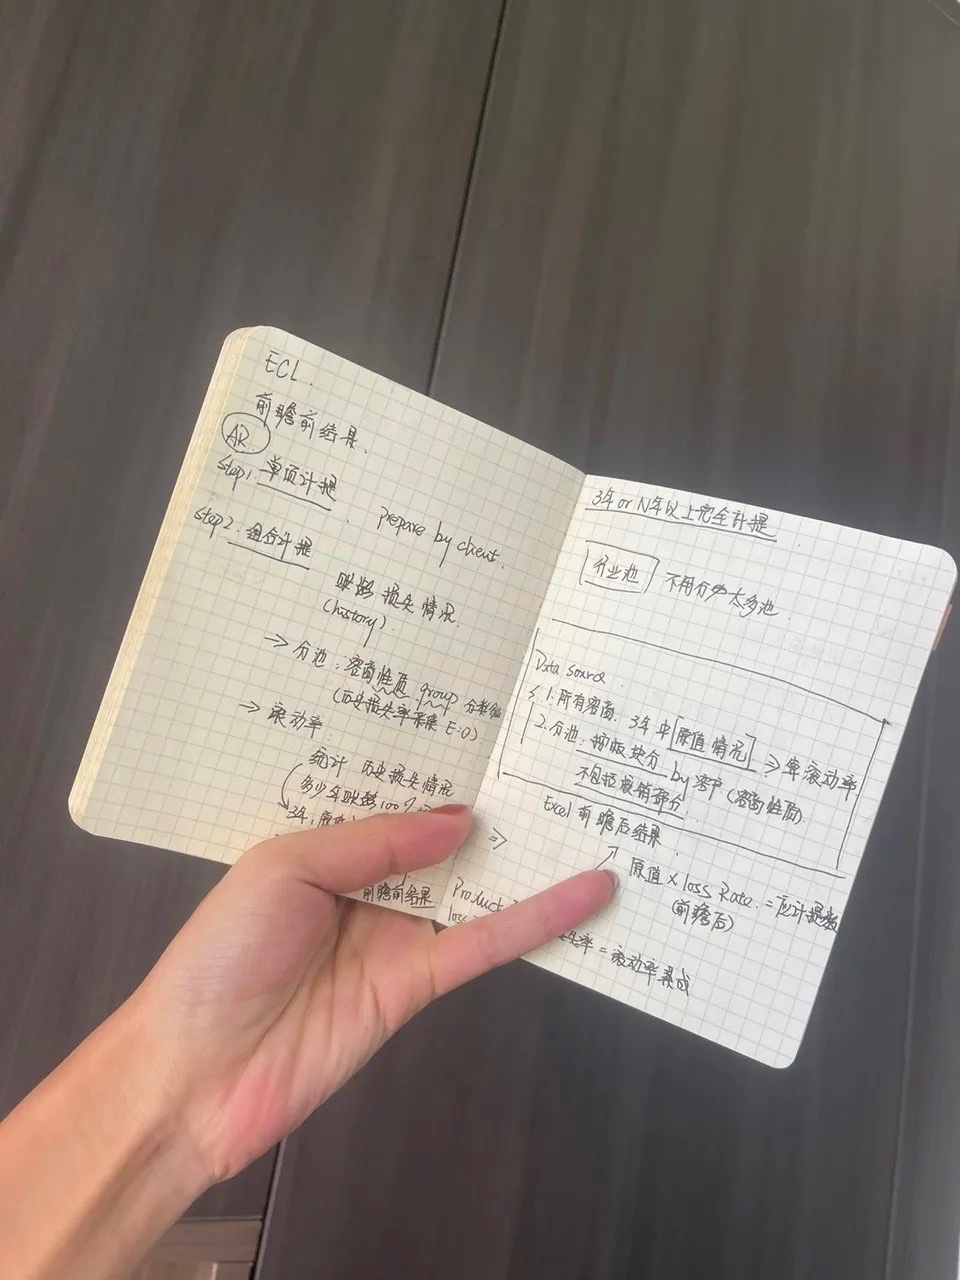 ECL.
前瞻前结果、
AR
Step1. 单项计提
Step2. 组合计提
prepare by client.
账龄 损失情况.
(history).
⇒ 分池: 客商性质 group 分类
(历史损失率
⇒ 滚动率:
统计 历史损失情况
多少年账龄100%
3年,
前瞻前结果
3年 or N年以上完全计提
不用分 太多池.
Data source.
1. 所有客商. 3年中 原值情况 ⇒ 算滚动率
2. 分池: 按板块分 by 客户 (客商性质)
不包括核销部分.
Excel 前瞻后结果.
⇒
原值 × loss Rate. = 应计提数
(前瞻后)
Product
loss
失率 = 滚动率乘成